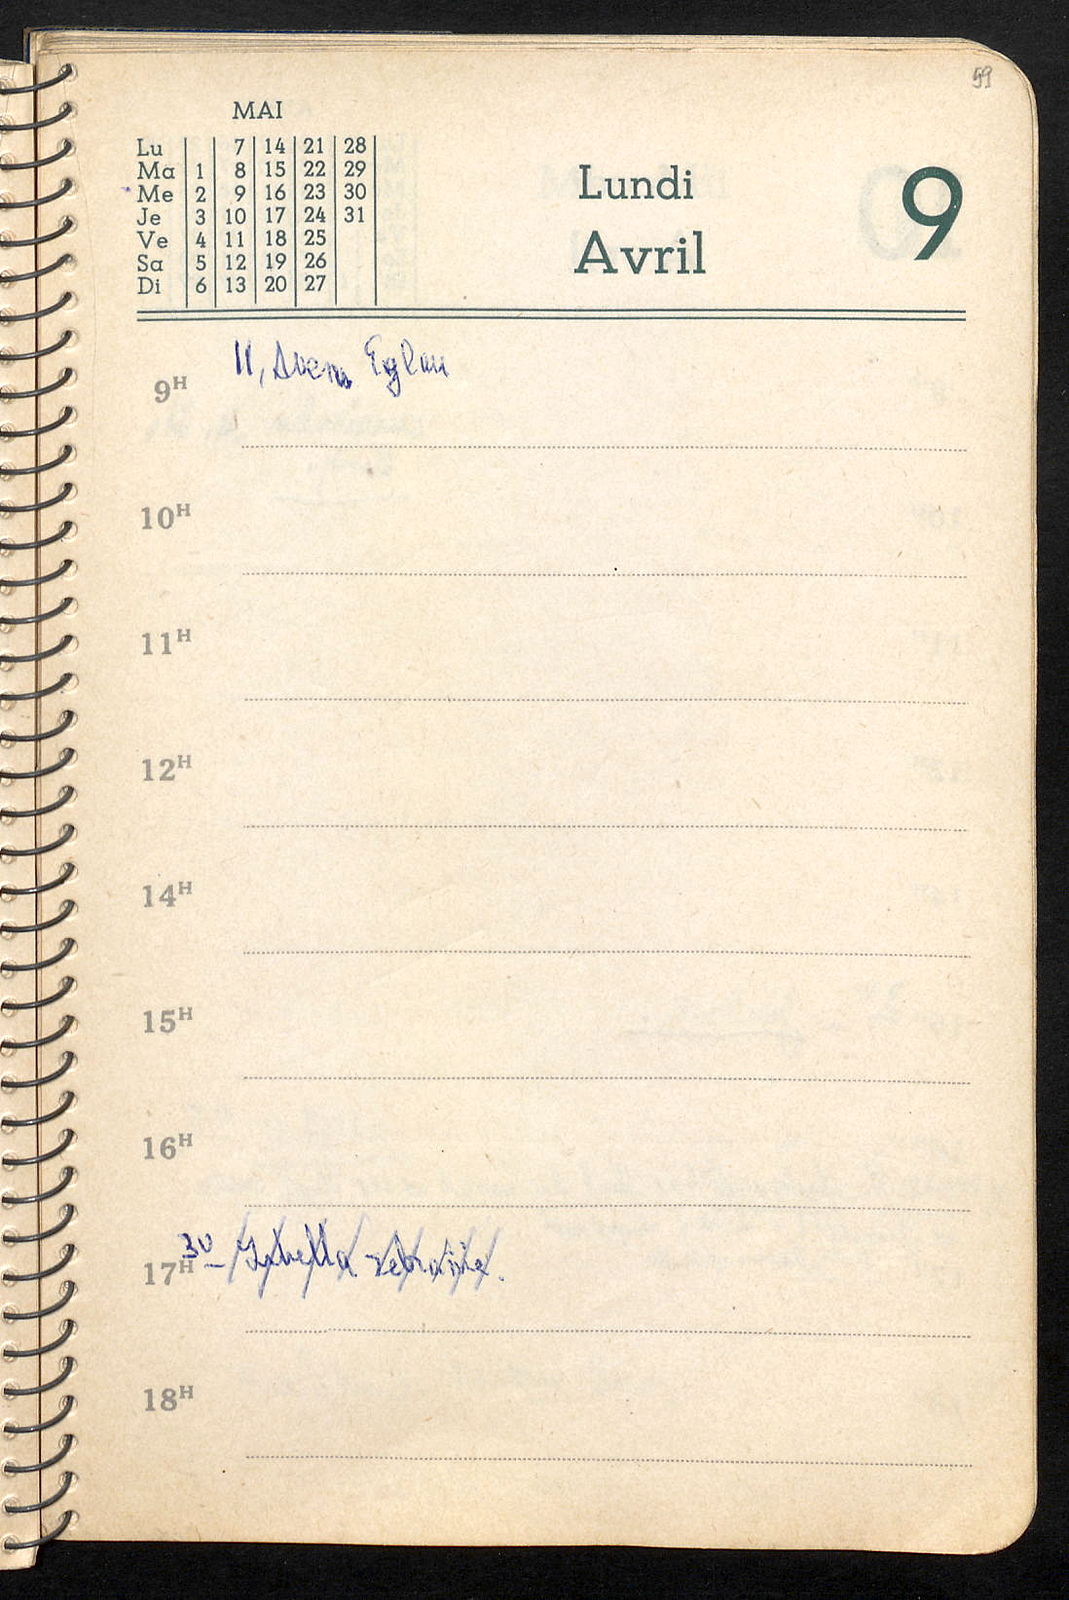 59
MAI
Lu 7 14 21 28
Ma 1 8 15 22 29
Me 2 9 16 23 30
Je 3 10 17 24 31
Ve 4 11 18 25
Sa 5 12 19 26
Di 6 13 20 27
Lundi 9
Avril
11,
9H
10H
11H
12H
14H
15H
16H
30 –
17H
18H